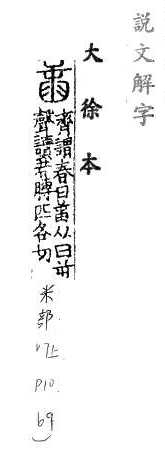 說文解字
大徐本
齊謂舂曰从臼屰
聲讀若膊匹各切
米部
7上
P10.
69)